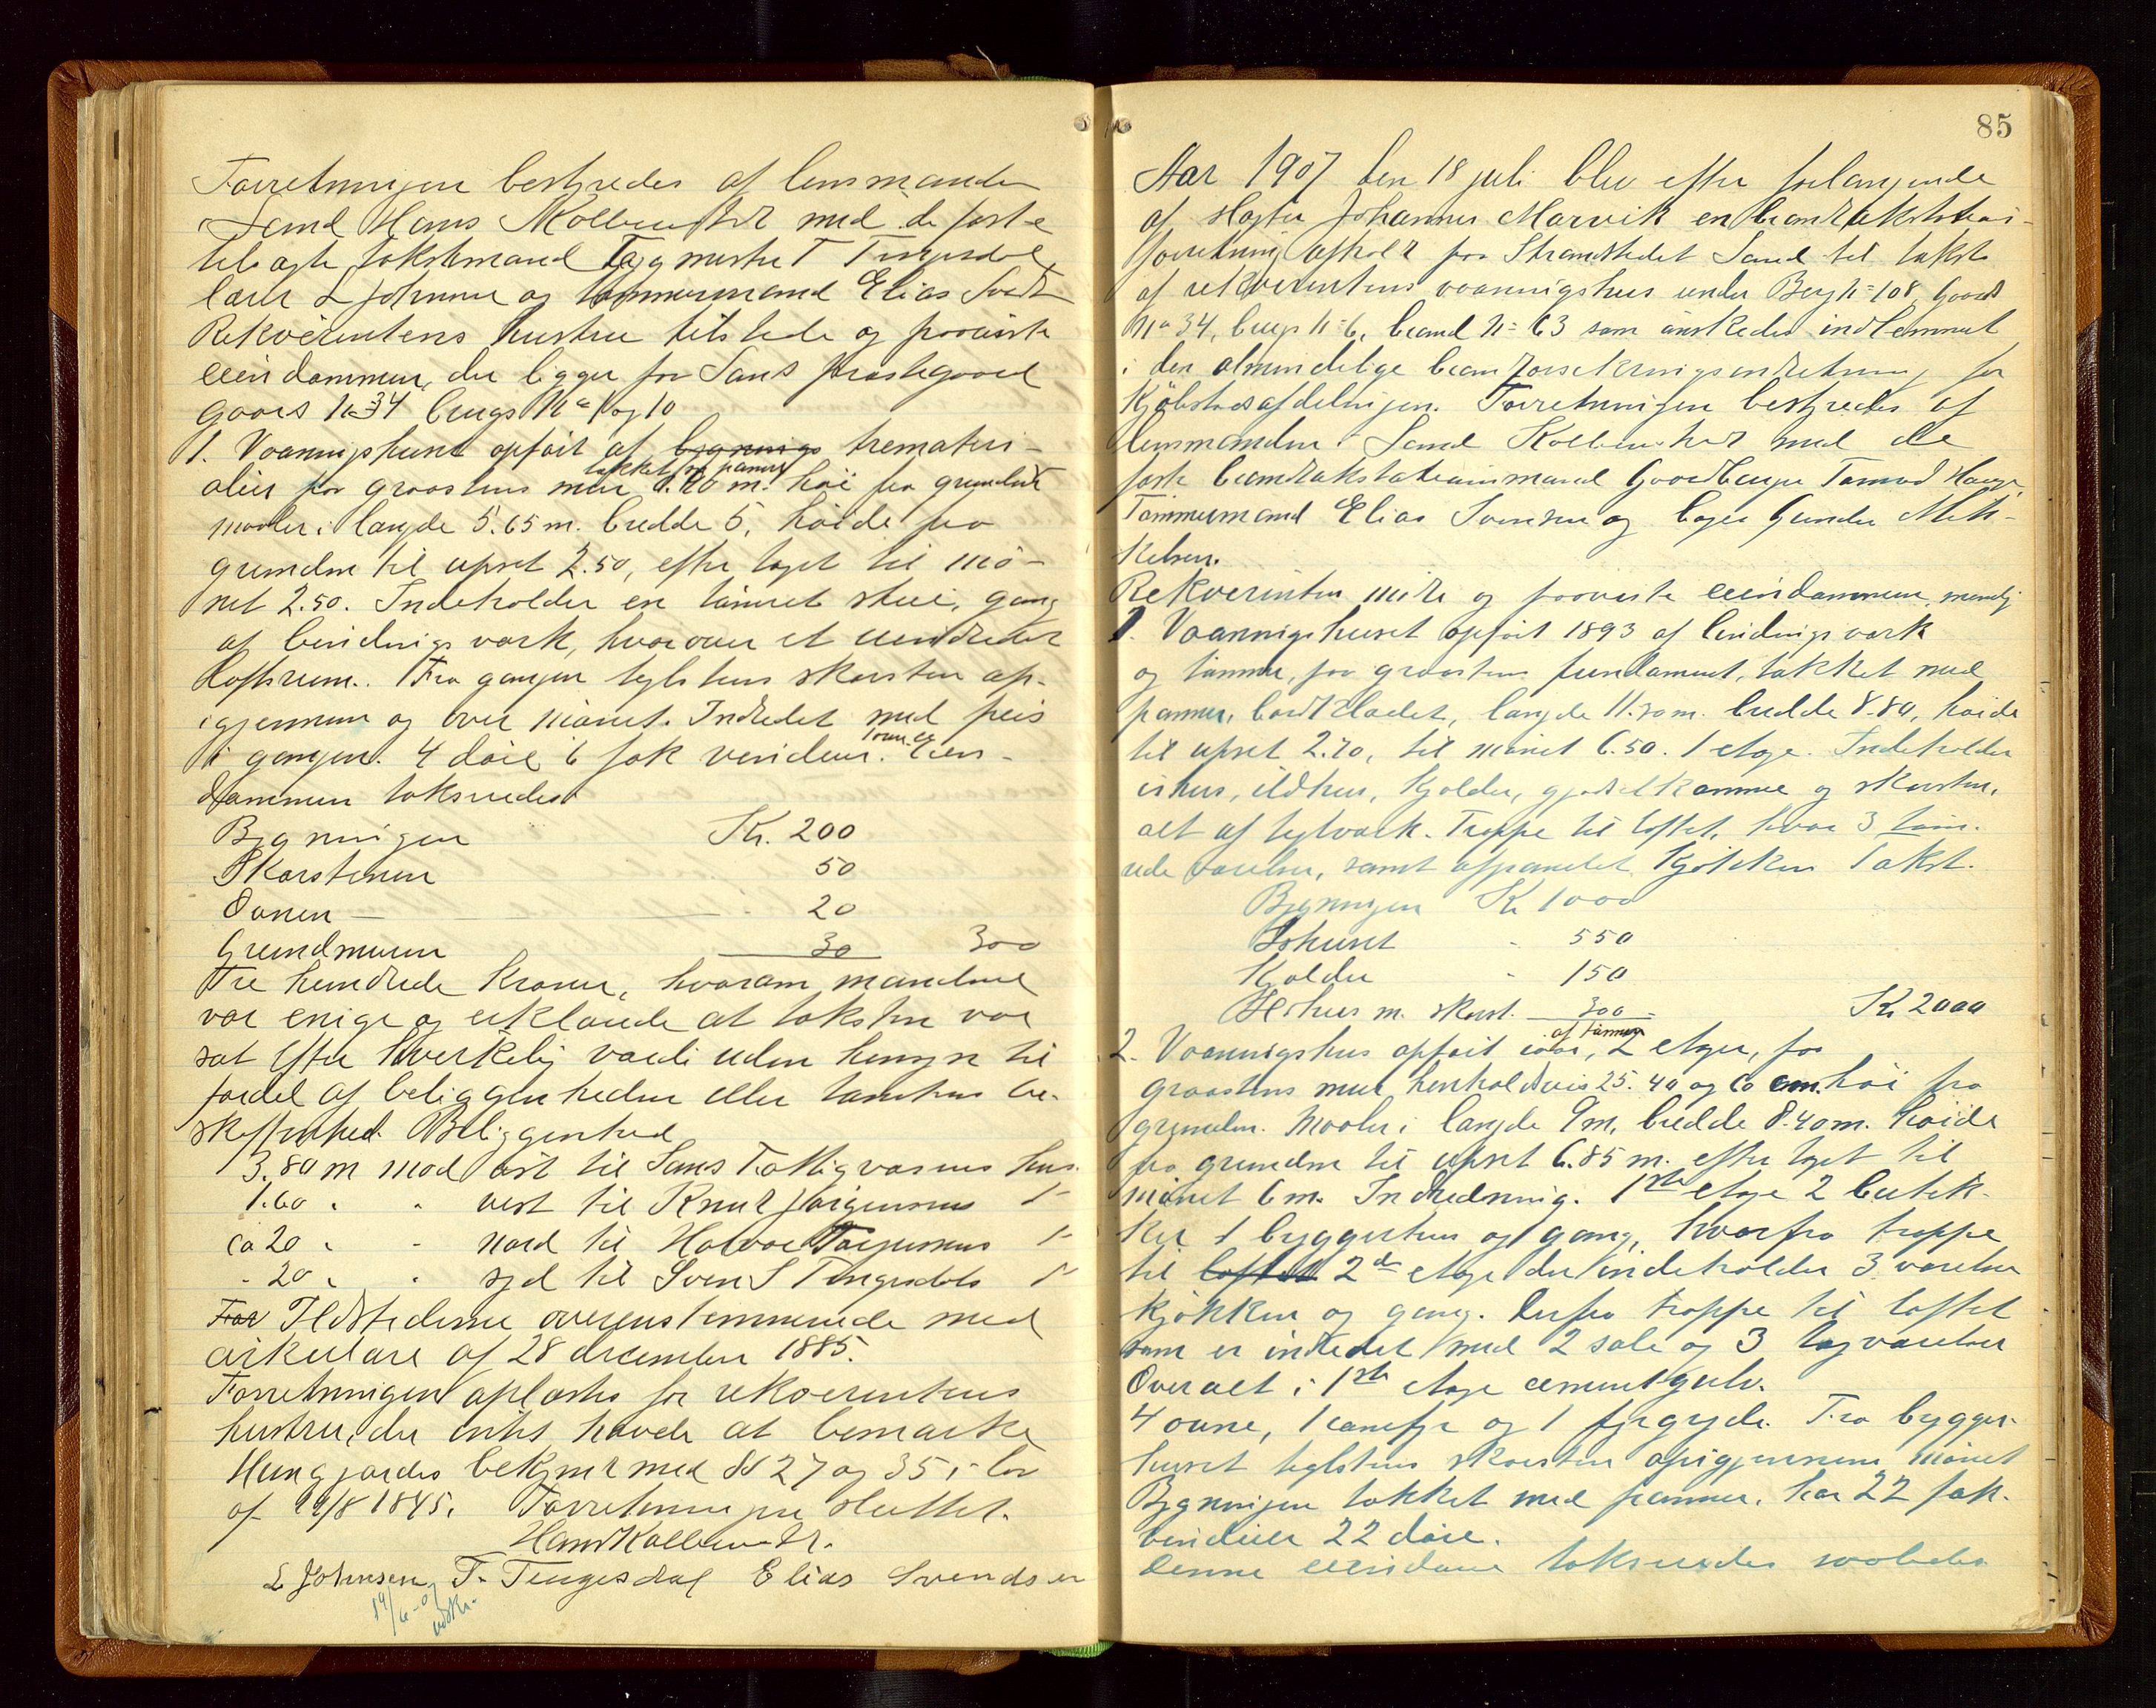 Forretningen bestyredes af lensmanden
i Sand Hans Kolbenstvedt med de fast-e
tilvagte takstmænd Bygmester T Tengesdal,
lærer L Johnsen og tømmermand Elias Svends
Rekvirentens hustru tilstede og paaviste
eiendommen, der ligger paa Sands prestegaard
gaards No 34 brugs No 1 og 10
1. Vaaningshuset opført af bygnings træmateri-
takket m panner
alier paa graastens mur 0.20 m. høi fra grunden
maaler i længde 5.65 m. bredde 5, høide fra
grunden til upset 2.50, efter taget til mø-
net 2.50. Indeholder en tømret stue, gang
af bindingsværk, hvorover et uindredet
loftsrum. Fra gangen teglstens skorsten op-
igjennem og over mønet. Indredet med peis
i gangen. 4 døre 6 fak vinduer. 1 ovn. Eien-
dommen taksredes
Bygningen Kr. 200
Skorstenen 50
Ovnen — 20
Grundmuren 30 300
Tre hundrede kroner, hvorom mændene
var enige og erklærede at taksten var
sat efter virkelig værdi uden hensyn til
fordel af beliggenheden eller tomtens be-
skaffenhed. Beliggenhed
3.80 m mod øst til Sands Fattigvæsens hus
1.60 " " vest til Knut Jørgensens "
ca 20 " - nord til Halvor Torjussens "
- 20 " " syd til Sven S Tengesdals "
For Ildstederne overensstemmende med
cirkulære af 28 december 1885.
Forretningen oplæstes for rekvirentens
hustru, der intet havde at bemærke
Hun gjordes bekjent med §§ 27 og 35 i lov
af 19/8 1845. Forretningen sluttet.
Hans Kolbenstvedt.
L Johnsen T. Tengesdal Elias Svendsen
udskr.
85
Aar 1907 den 18 juli blev efter forlangende
af Hagter Johannes Marvik en brandtakstations-
forretning afholdt paa Strandstedet Sand til takst
af rekvirentens vaaningshus under Bergh= 108, Gaards
No 34, brugs N= 6, brand N= 63 som ønskedes indlemmet
i den almindelige brandforsikringsindretning for
Kjøbstadsafdelingen. Forretningen bestyredes af
lensmanden i Sand Kolbenstvedt med de
faste brandtakstationsmænd Gaardbruger Tormod Hauge
Tømmermand Elias Svensen og bager Gunder Mik-
kelsen.
Rekvirenten mødte og paaviste eiendommen, nemlig
1. Vaaningshuset opført 1893 af bindingsværk
og tømmer, paa graastens fundament, takket med
panner, bordklædet, længde 11.30 m. bredde 8.80, høide
til upset 2.70, til mønet 6.50. 1 etage. Indeholder
ishus, ildhus, kjelder, og skorsten,
alt af teglværk. Trappe til loftet, hvor 3 tøm-
rede værelser, samt afpanelet kjøkken Takst.
Bygningen Kr 1000
Ishuset - 550
Kjelder - 150
Ildhus m. skorst. 300 Kr 2000
af tømmer
2. Vaaningshus opført iaar, 2 etager, paa
graastens mur henholdsvis 25. 40 og 60 cm. høi fra
grunden. Maaler i længde 9 m, bredde 8.40 m. høide
fra grunden til upset 6.85 m. efter taget til
mønet 6 m. Indredning. 1ste etage 2 butik-
ker 1 bryggerhus og gang, hvorfra trappe
til loftet 2den etage der indeholder 3 værelser
kjøkken og gang. Derfra trappe til loftet
som er indredet med 2 sale og 3 tagværelser
Overalt i 1ste etage cementgulv.
4 ovne, 1 komfyr og 1 fyrgryde. Fra brygger-
huset teglstens skorsten opigjennem mønet
Bygningen takket med panner, har 22 fak-
vinduer 22 døre.
Denne eiendom taksredes saaledes